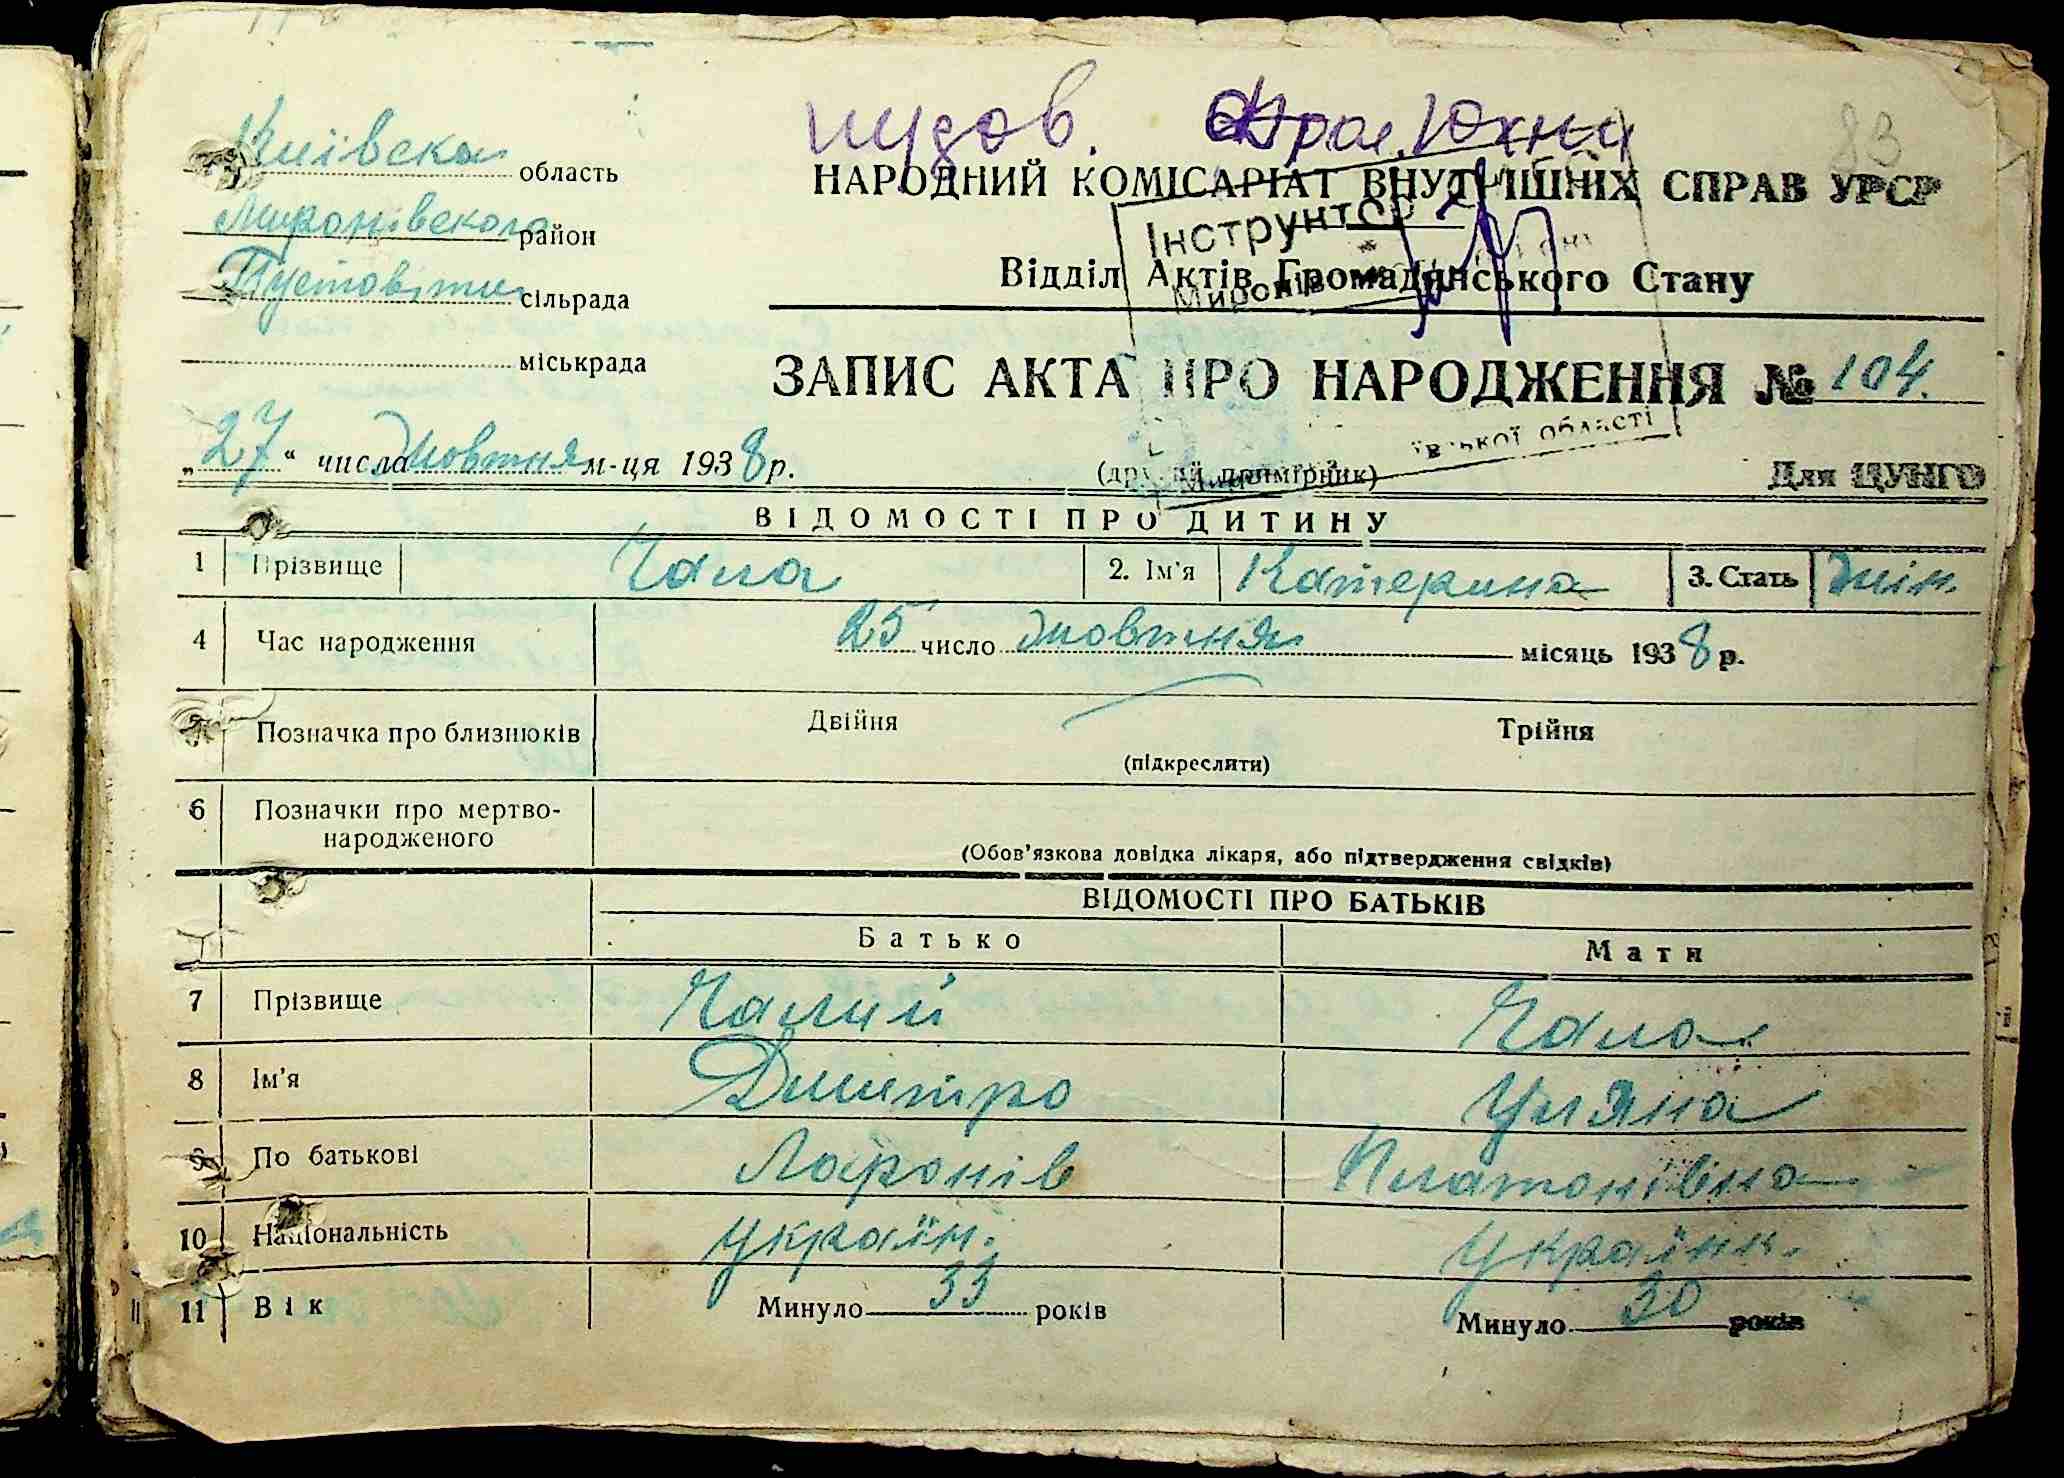 83
Київська область
Миронівского район
Пустовіти сільрада
міськрада
НАРОДНИЙ КОМІСАРІАТ ВНУТРІШНІХ СПРАВ УРСР
Інструктор
Відділ Актів Громадянського Стану
ЗАПИС АКТА ПРО НАРОДЖЕННЯ № 104.
„27“ числа жовтня м-ця 1938 р.
(другий примірник)
області
Для ЦУНГО
ВІДОМОСТІ ПРО ДИТИНУ
1 Прізвище Чала 2. Ім'я Катерина 3. Стать жін.
4 Час народження 25 число жовтня місяць 1938 р.
5 Позначка про близнюків Двійня Трійня
(підкреслити)
6 Позначки про мертво-
народженого
(Обов'язкова довідка лікаря, або підтвердження свідків)
ВІДОМОСТІ ПРО БАТЬКІВ
Батько Мати
7 Прізвище Чалий Чала
8 Ім'я Дмитро Уляна
9 По батькові Ларонів Платонівна
10 Національність україн. українк.
11 Вік Минуло 33 років Минуло 30 років